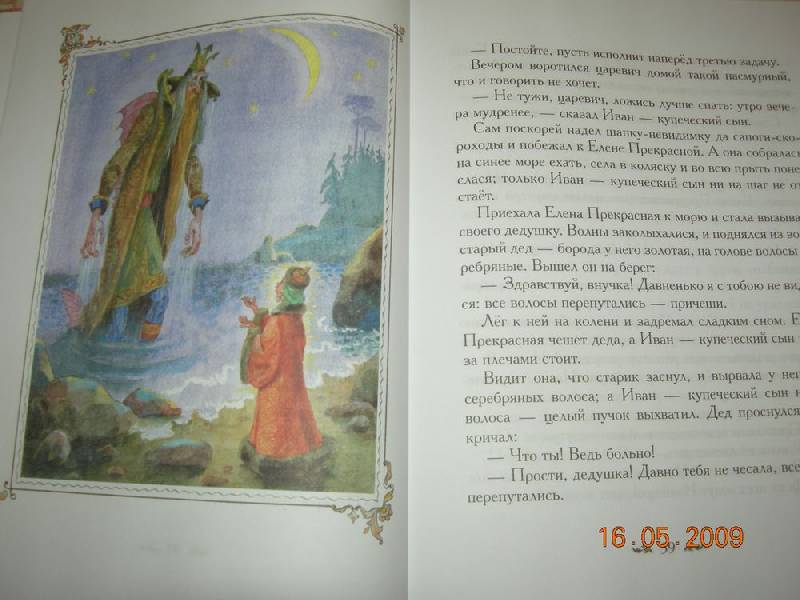 — Постойте, пусть исполнит наперёд третью задачу.
Вечером воротился царевич домой такой пасмурный,
что и говорить не хочет.
— Не тужи, царевич, ложись лучше спать: утро вече-
ра мудренее, — сказал Иван — купеческий сын.
Сам поскорей надел шапку-невидимку да сапоги-ско-
роходы и побежал к Елене Прекрасной. А она собралась
на синее море ехать, села в коляску и во всю прыть поне-
слася; только Иван — купеческий сын ни на шаг не от-
стаёт.
Приехала Елена Прекрасная к морю и стала вызыва
своего дедушку. Волны заколыхалися, и поднялся из во
старый дед — борода у него золотая, на голове волосы
ребряные. Вышел он на берег:
— Здравствуй, внучка! Давненько я с тобою не вид
ся: все волосы перепутались — причеши.
Лёг к ней на колени и задремал сладким сном. Е
Прекрасная чешет деда, а Иван — купеческий сын
за плечами стоит.
Видит она, что старик заснул, и вырвала у нег
серебряных волоса; а Иван — купеческий сын н
волоса — целый пучок выхватил. Дед проснулся
кричал:
— Что ты! Ведь больно!
— Прости, дедушка! Давно тебя не чесала, все
перепутались.
16.05.2009
59